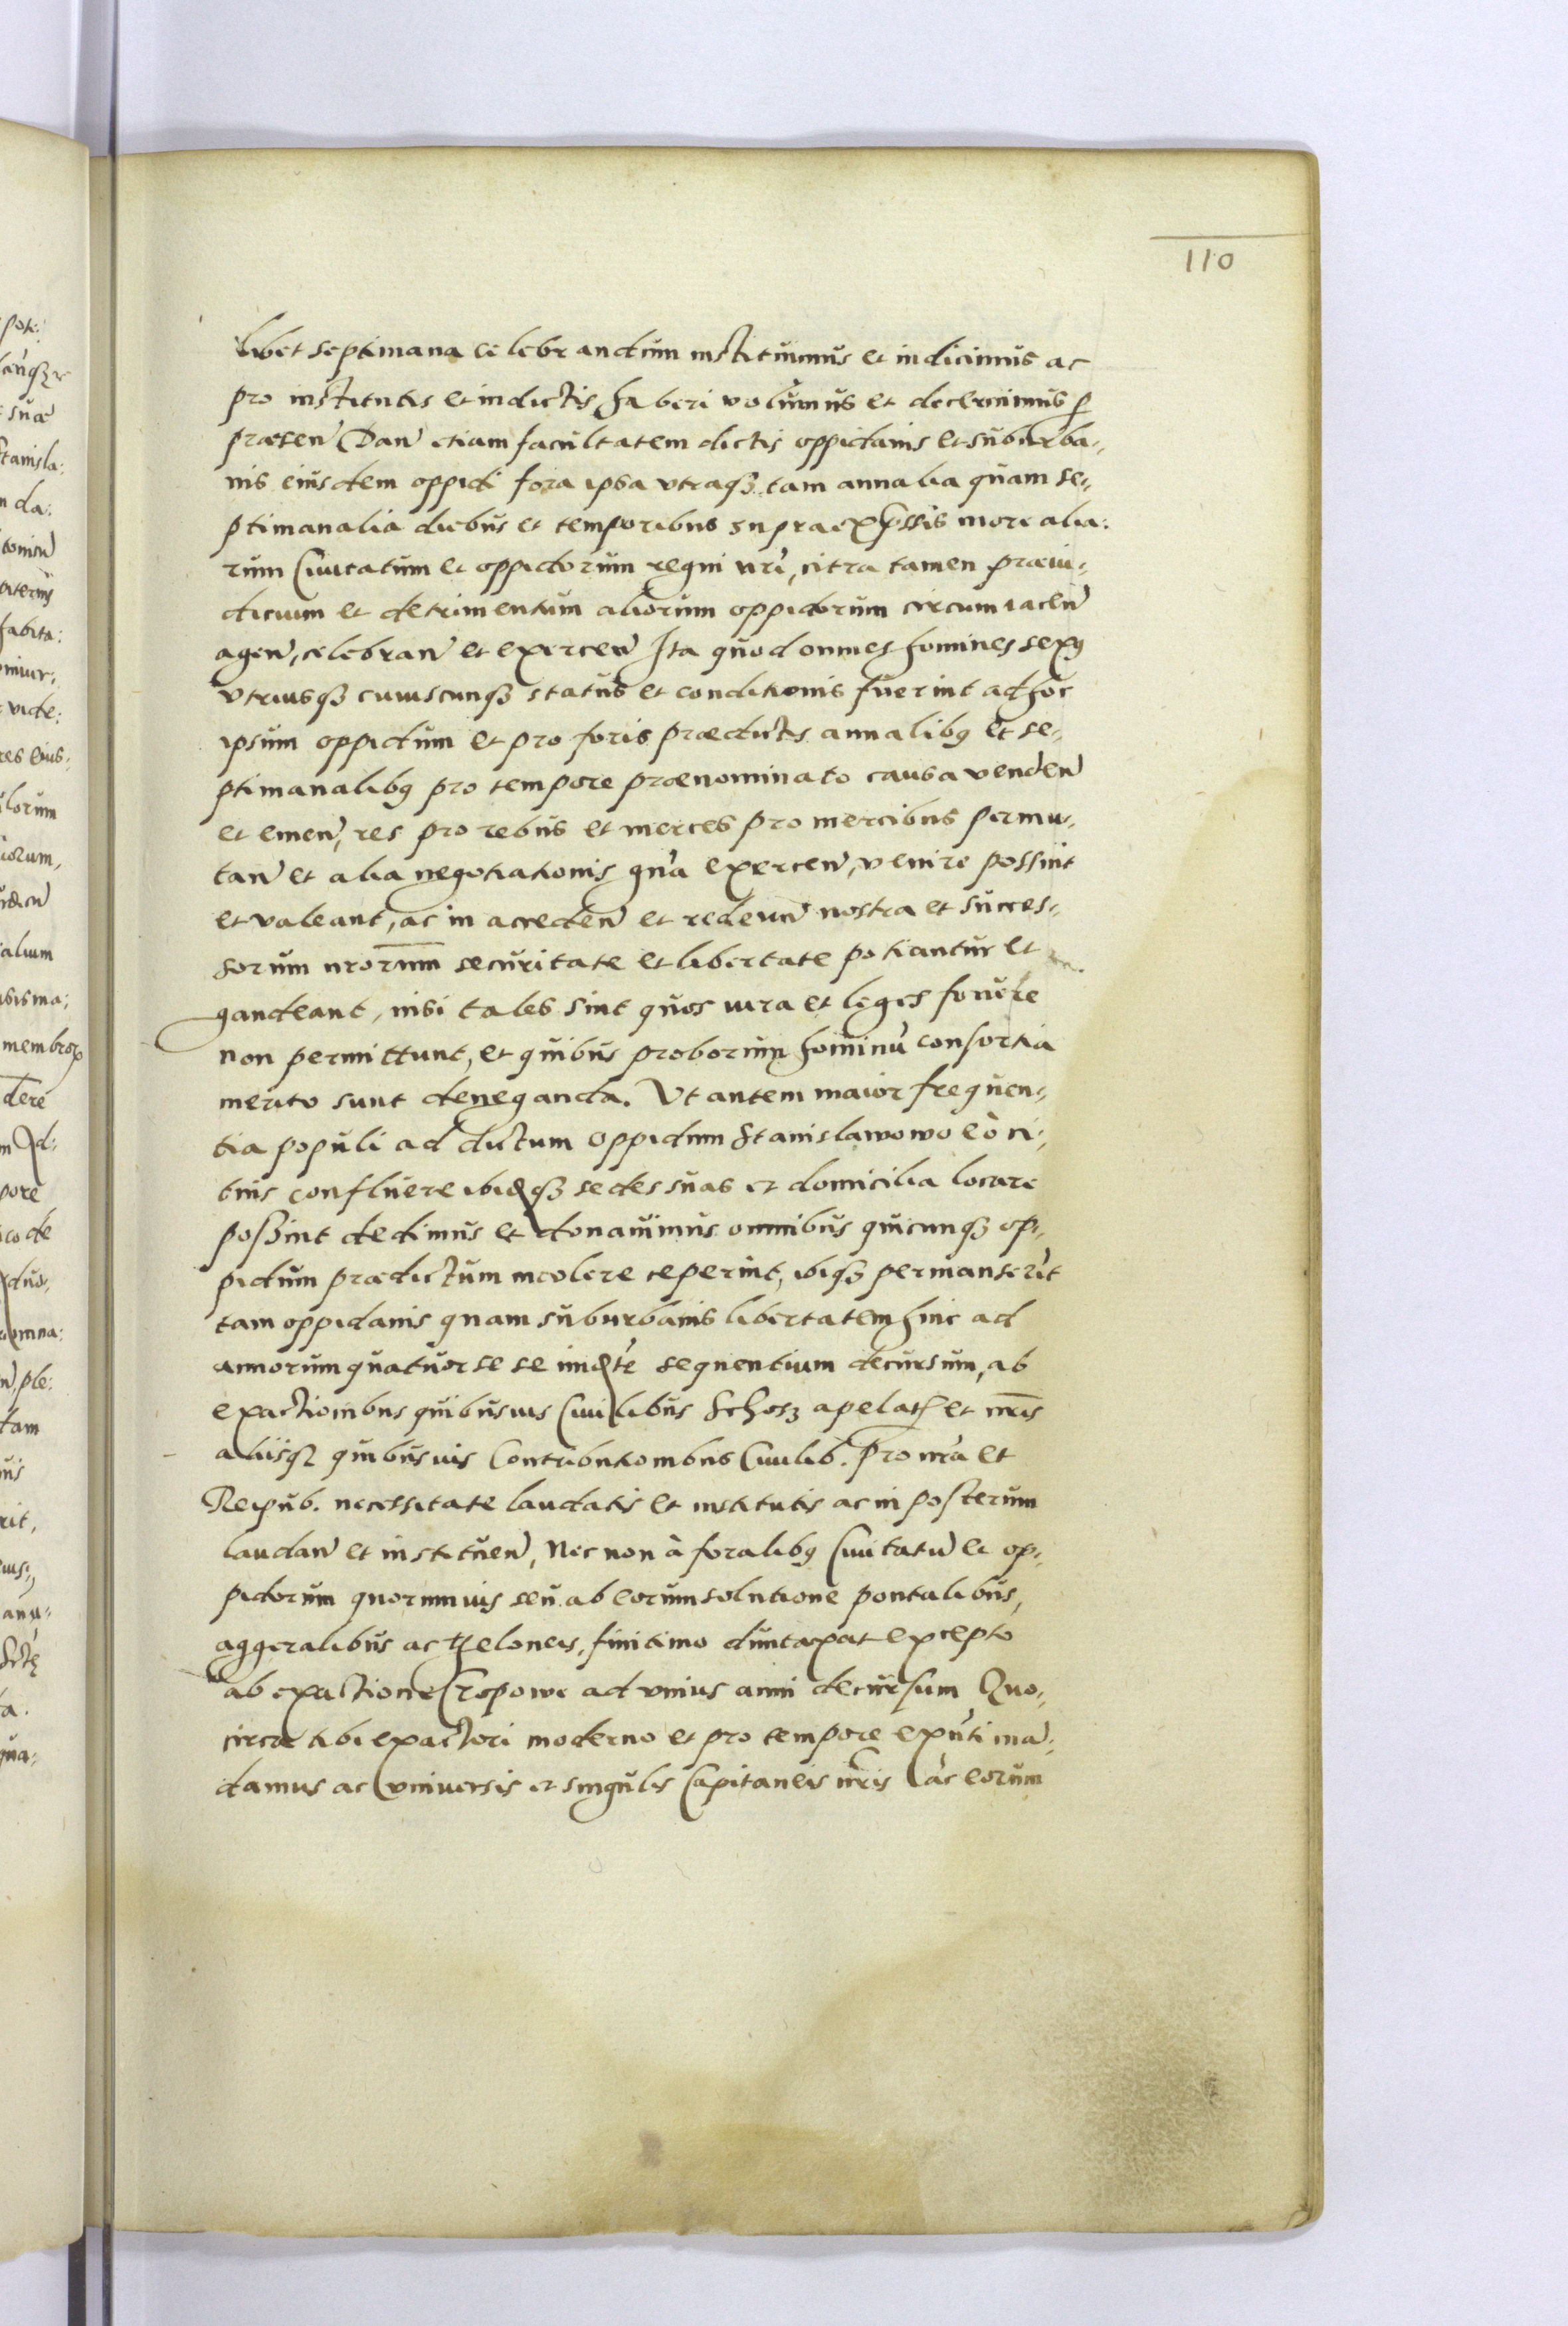 110
libet septimana celebrandum instituimus et indicimus ac
pro institutis et indictis haberi volumus et decernimus p
præsen Dan etiam facultatem dictis oppidanis et suburba-
nis eiusdem oppidi fora ipsa vtraqꝫ tam annalia quam se-
ptimanalia diebus et temporibus supraexpssis more alia-
rum Ciuitatum et oppidorum regni nri, citra tamen præiu-
dicium et detrimentum aliorum oppidorum circumiacen
agen, celebran et exercen Ita quod omnes homines sexꝰ
vtriusqꝫ cuiuscunqꝫ status et conditionis fuerint ad hoc
ipsum oppidum et pro foris prædictis annalibꝰ et se-
ptimanalibꝰ pro tempore prænominato causa venden
et emen, res pro rebus et merces pro mercibus permu-
tan et alia negotiationis gna exercen, venire possint
et valeant, ac in acceden et redeun nostra et succes-
sorum nrorum securitate et libertate potiantur et
gaudeant, nisi tales sint quos iura et leges fouere
non permittunt, et quibus proborum hominū consortia
merito sunt deneganda. Vt autem maior frequen-
tia populi ad dictum oppidum Stanislawowo eò ci-
tius confluere ibidqꝫ sedes suas et domicilia locare
possint dedimus et donauimus omnibus quicunqꝫ op-
pidum prædictum incolere ceperint, ibiqꝫ permanserīt
tam oppidanis quam suburbanis libertatem hinc ad
annorum quatuor se se imdte sequentium decursum, ab
exactionibus quibusuis Ciuilibus Schosz apelatꝭ et nris
aliisqꝫ quibusuis Contributionibus Ciuilib. Pro nra et
Reipub. necessitate laudatis et institutis ac in posterum
laudan et instituen, Nec non à foralibꝰ Ciuitatū et op-
pidorum quorumuis seu ab eorum solutione pontalibus,
aggeralibus ac theloneis, finitimo duntaxat excepto
ab exactione Czopowe ad vnius anni decursum Quo-
circa tibi exactori moderno et pro tempore exnti mā-
damus ac vniuersis et singulis Capitaneis nris ac eorum